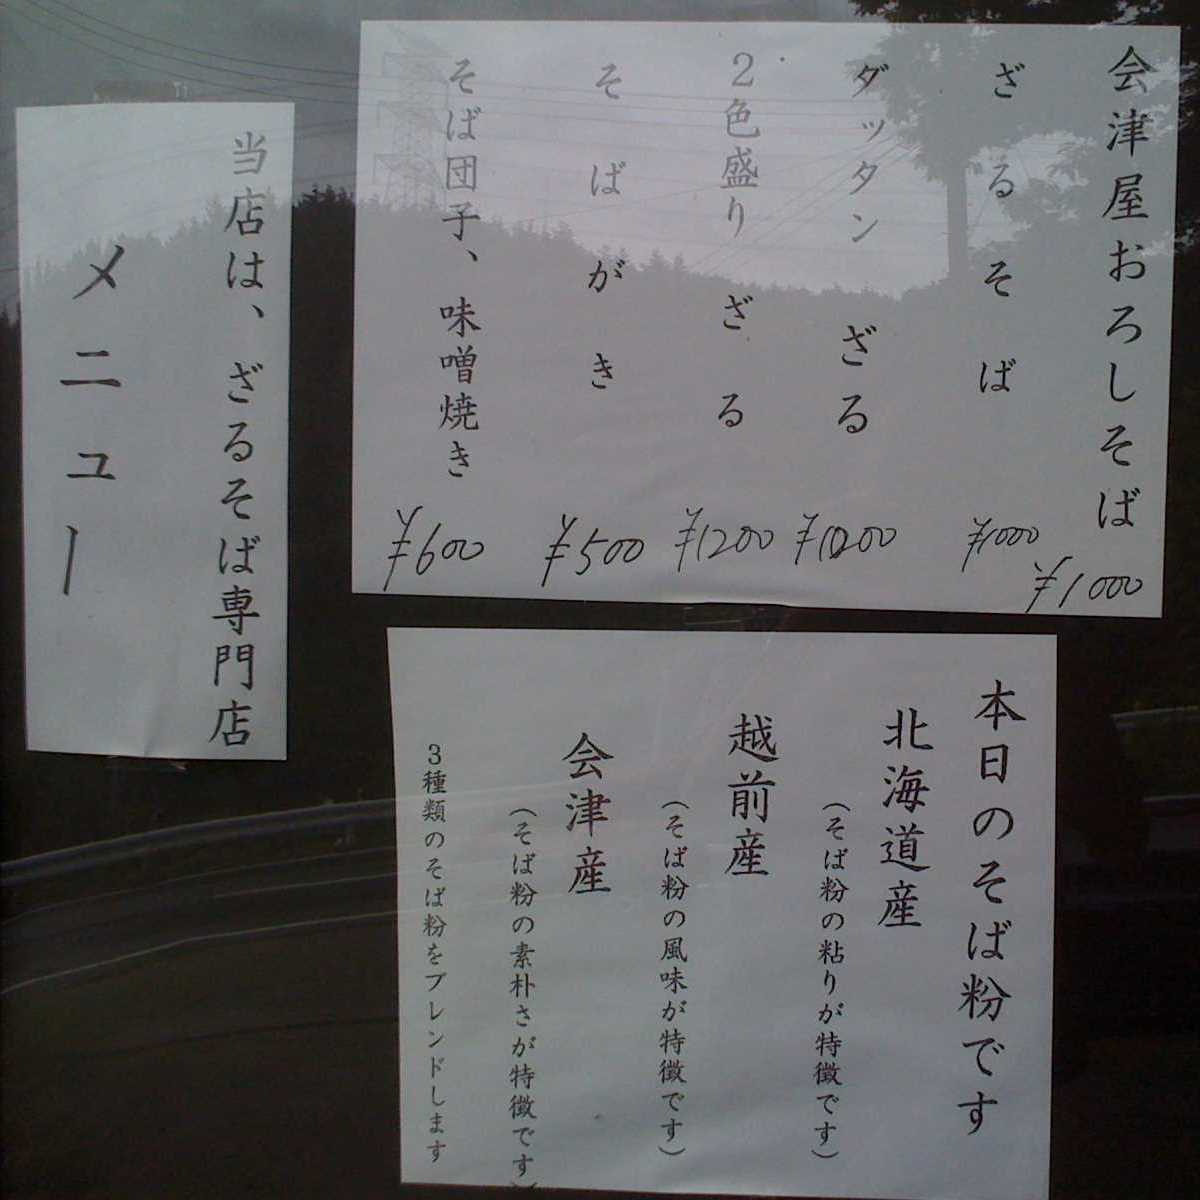 会津屋おろしそば ¥1000
ざるそば ¥1000
ダッタンざる
2色盛りざる ¥1200
そばがき ¥500
そば団子、味噌焼き ¥600
当店は、ざるそば専門店
メニュー
本日のそば粉です
北海道産
(そば粉の粘りが特徴です)
越前産
(そば粉の風味が特徴です)
会津産
(そば粉の素朴さが特徴です)
3種類のそば粉をブレンドします